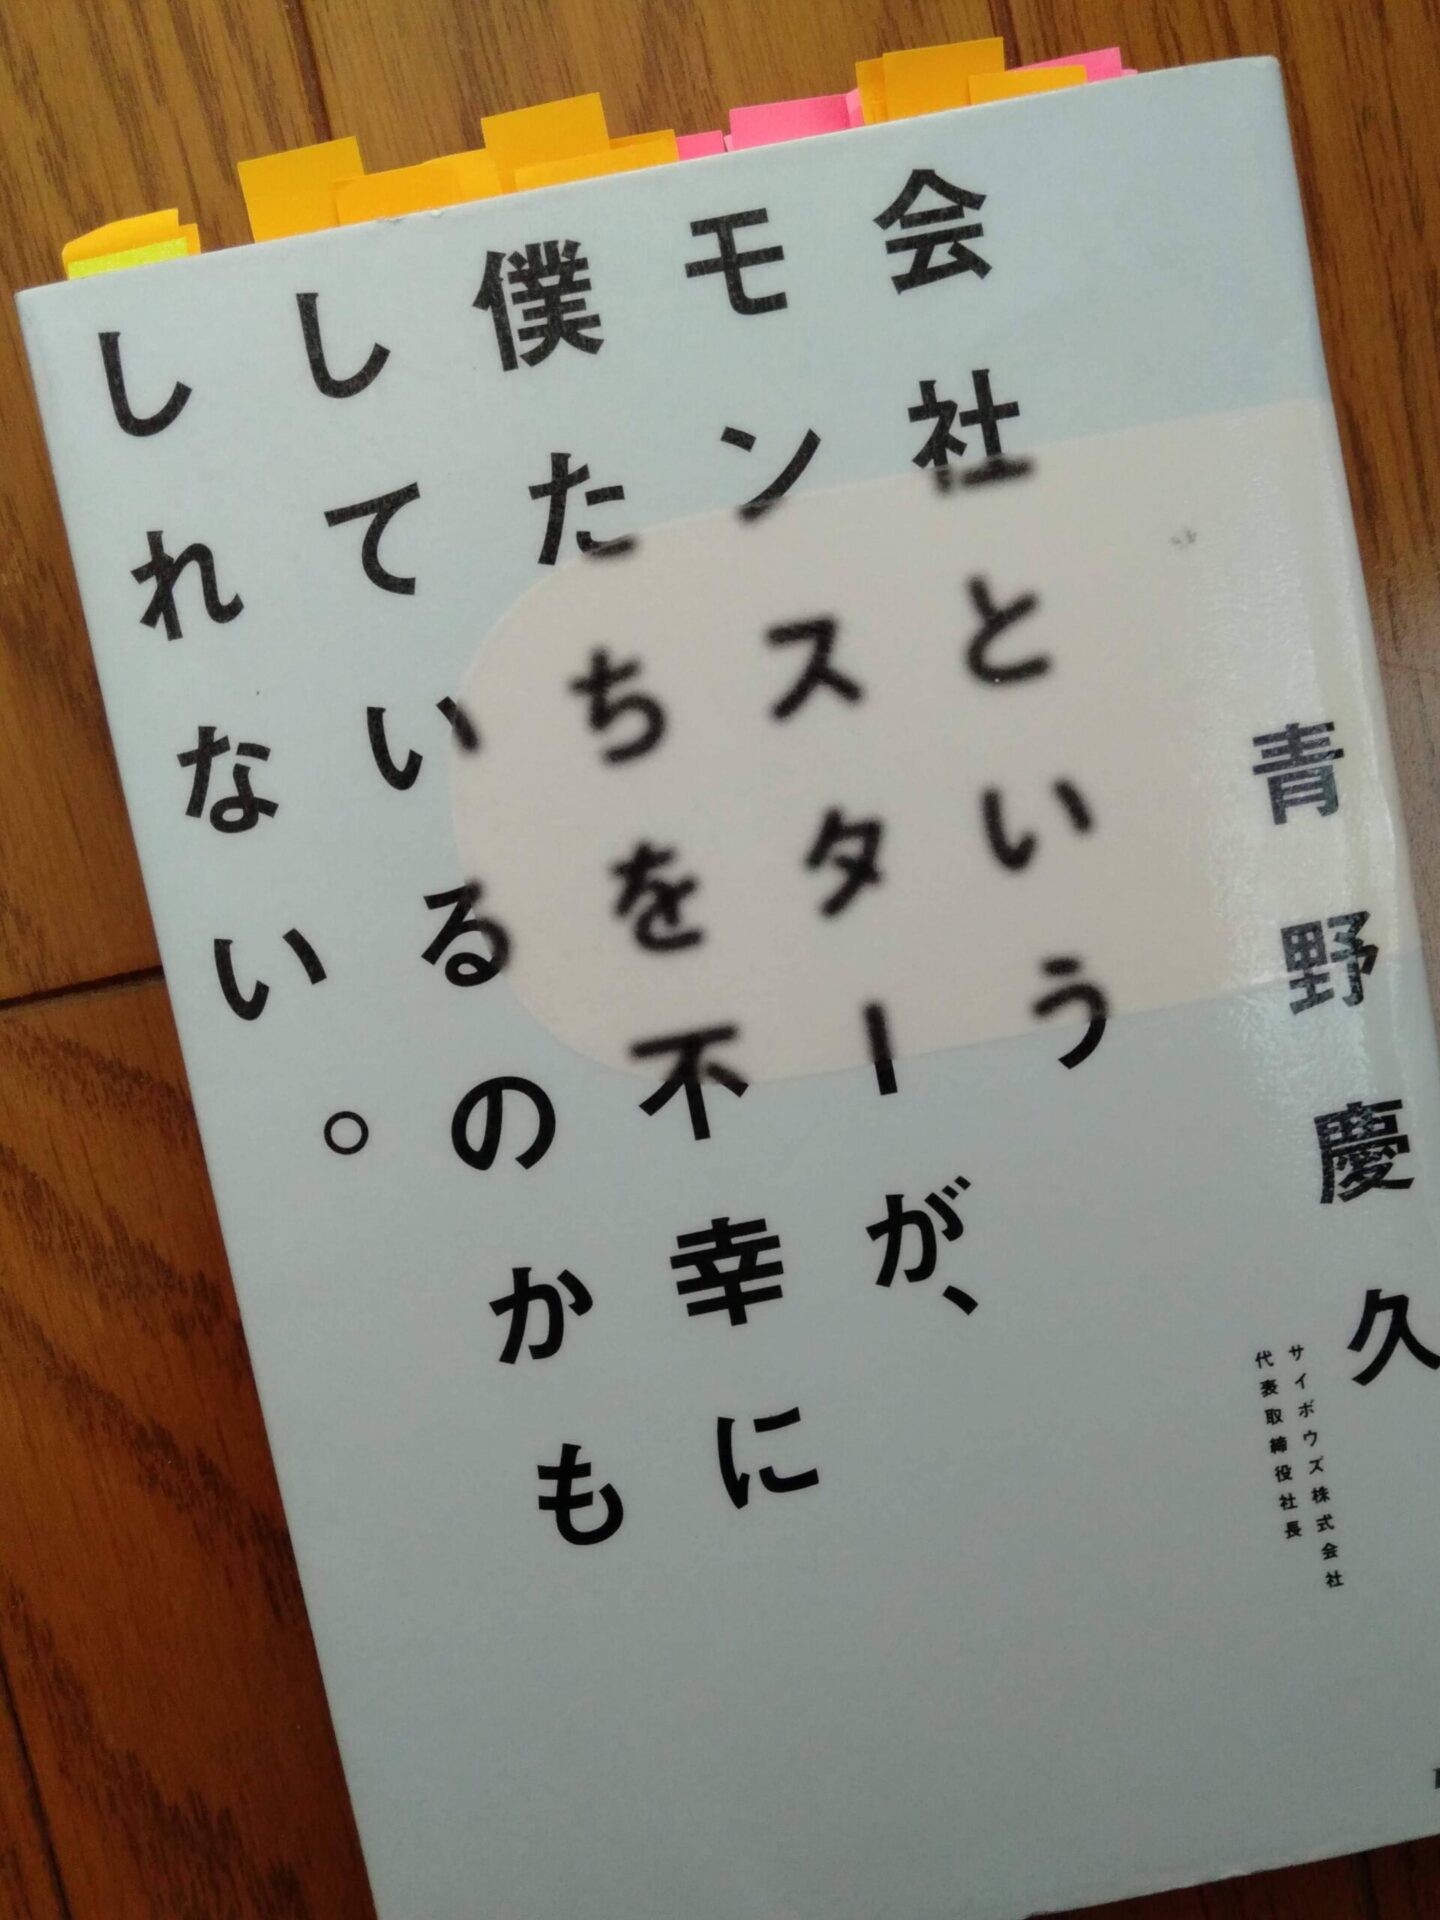 会社という
モンスターが、
僕たちを不幸に
しているのかも
しれない。
青野慶久
サイボウズ株式会社
代表取締役社長